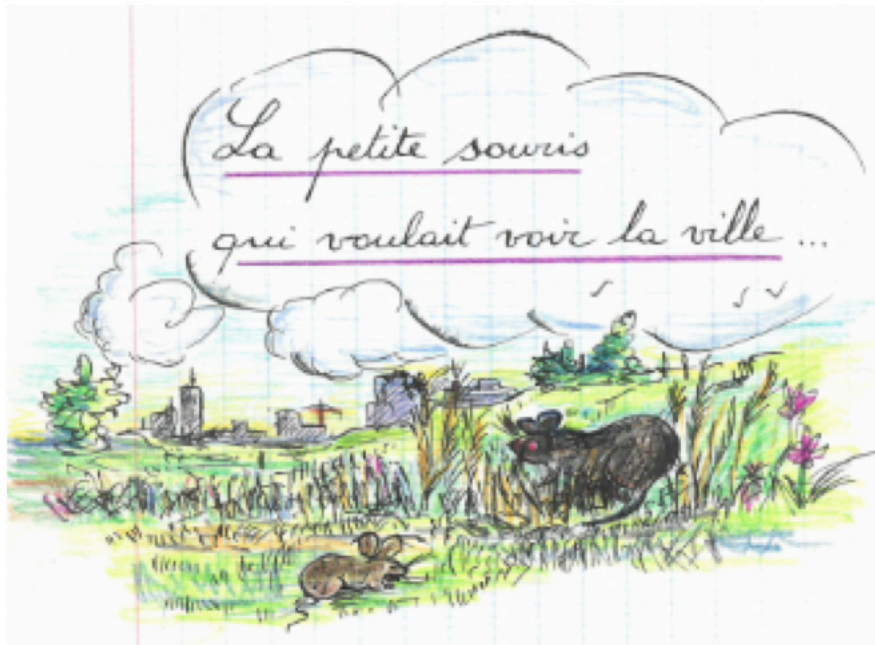 La petite souris
qui voulait voir la ville ...